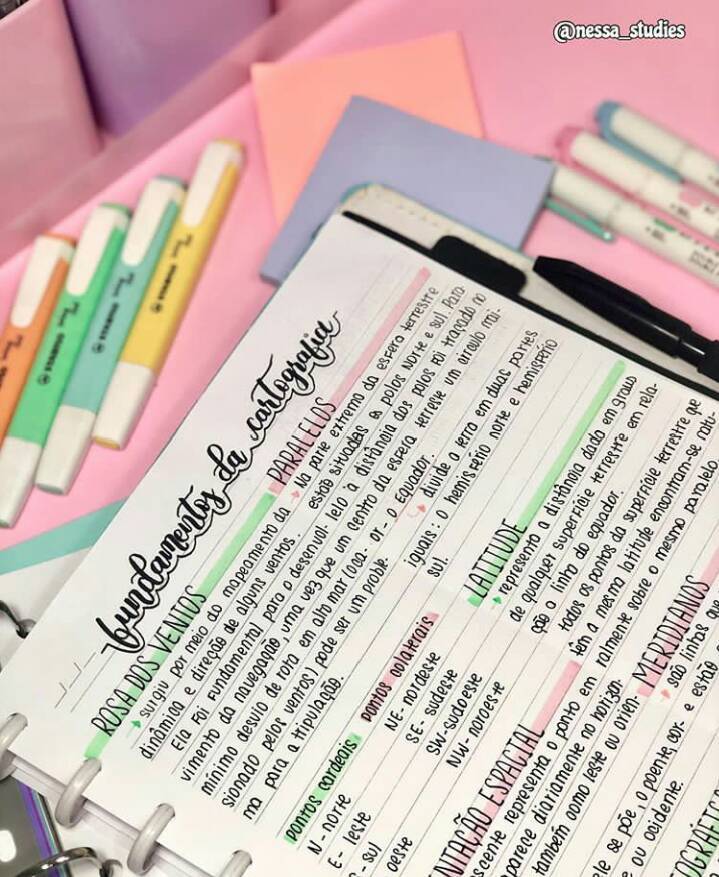 @nessa_studies
fundamentos da cartografia
ROSA DOS VENTOS
surgiu por meio do mapeamento da
dinâmica e direção de alguns ventos.
Ela foi fundamental para o desenvol-
vimento da navegação, uma vez que um
mínimo desvio de rota em alto mar (oca-
sionado pelos ventos) pode ser um proble-
ma para a tripulação.
pontos cardeais
N- norte
E- leste
S- sul
oeste
pontos colaterais
NE- nordeste
SE- sudeste
SW- sudoeste
NW- noroeste
NTAÇÃO ESPACIAL
scente representa o ponto em
parece diariamente no horizon-
também como leste ou orien-
ele se põe, o poente, cor-
e ou ocidente.
PARALELOS
Na parte extrema da esfera terrestre
estão situados os polos norte e sul. Para-
lelo à distância dos polos foi traçado no
centro da esfera terrestre um círculo mai-
or - o Equador.
divide a terra em duas partes
iguais: o hemisfério norte e hemisfério
sul.
LATITUDE
representa a distância dada em graus
de qualquer superfície terrestre em rela-
ção a linha do equador.
todos os pontos da superfície terrestre que
têm a mesma latitude encontram-se natu-
ralmente sobre o mesmo paralelo.
MERIDIANOS
são linhas que
e estão
STABILO
STABILO
STABILO